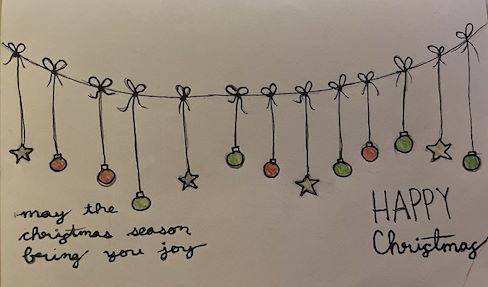 may the
christmas season
bring you joy
HAPPY
Christmas